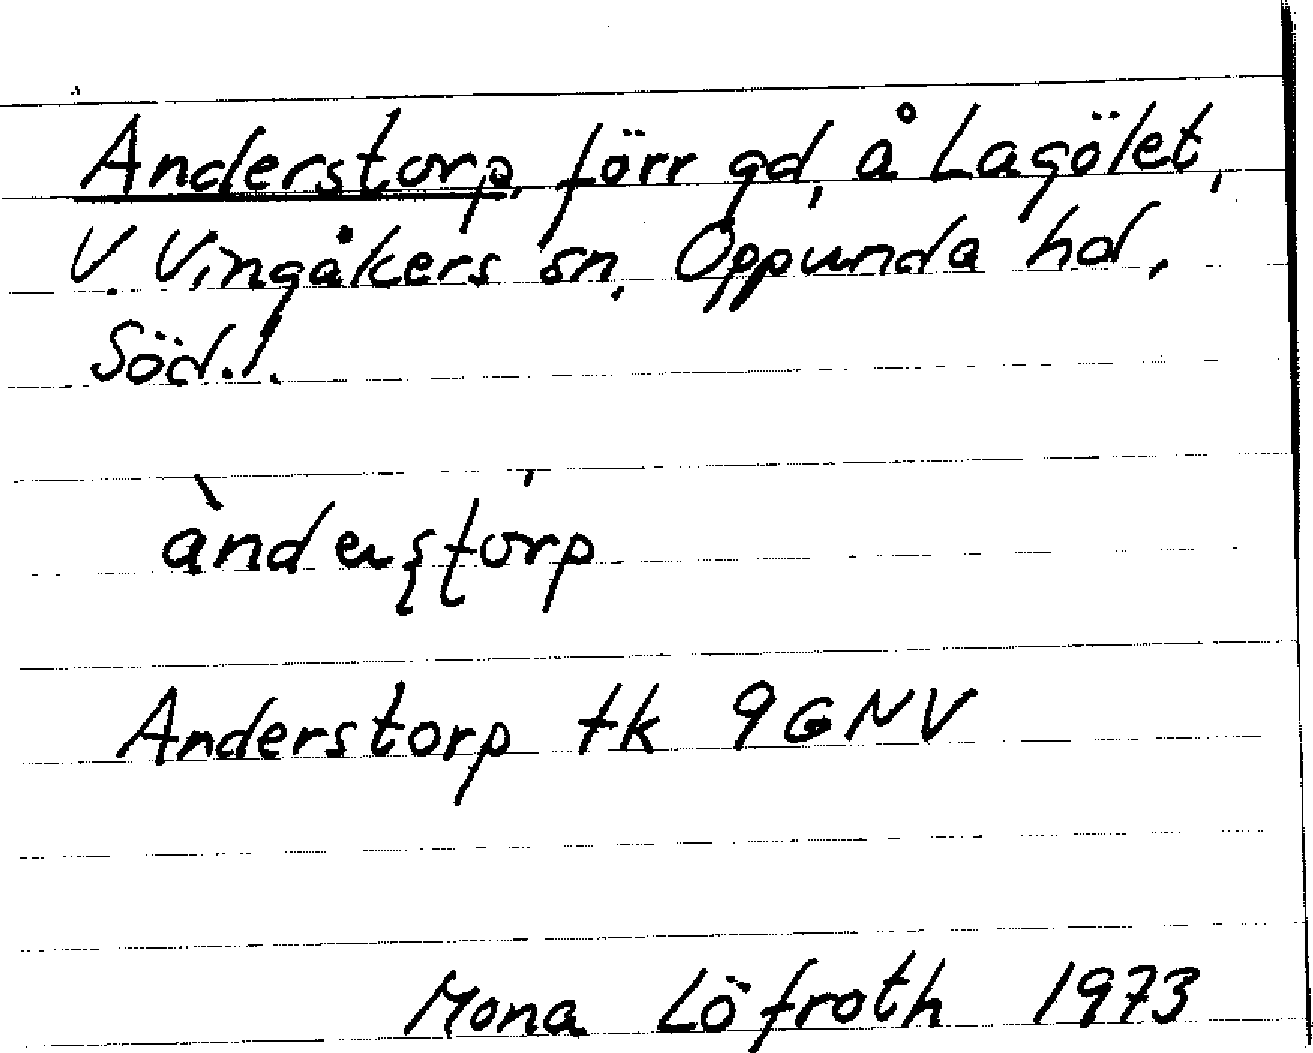 Anderstorp, förr gd, å Lagölet,
V. Vingåkers sn, Oppunda hd,
Söd.l.
Anderstorp tk 9GNV
Mona Löfroth 1973